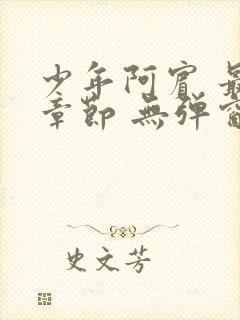 少年阿賓 最
章節 無彈窗
史文芳